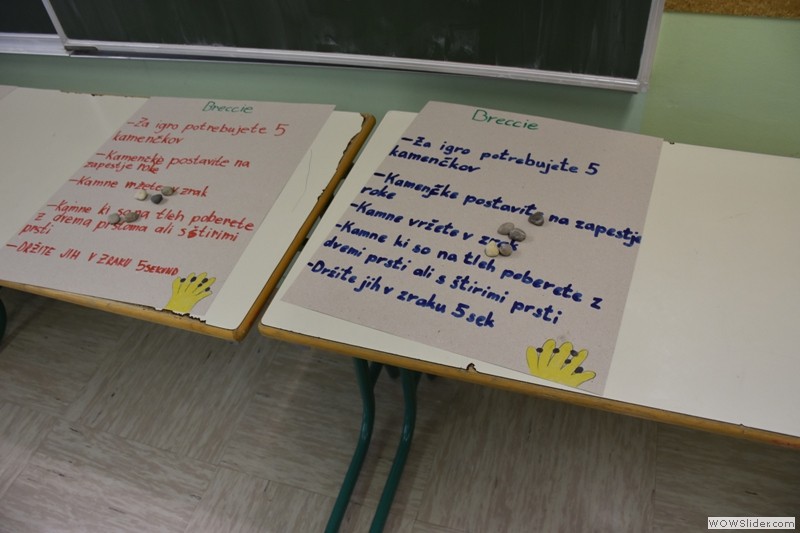 Breccie
-Za igro potrebujete 5
kamenčkov
-Kamenčke postavite na
zapestje roke
-Kamne vržete v zrak
-Kamne ki so na tleh poberete
z dvema prstoma ali s štirimi
prsti
-DRŽITE JIH V ZRAKU 5SEKUND
Breccie
-Za igro potrebujete 5
kamenčkov
-Kamenčke postavite na zapestje
roke
-Kamne vržete v zrak
-Kamne ki so na tleh poberete z
dvemi prsti ali s štirimi prsti
-Držite jih v zraku 5 sek
WOWSlider.com